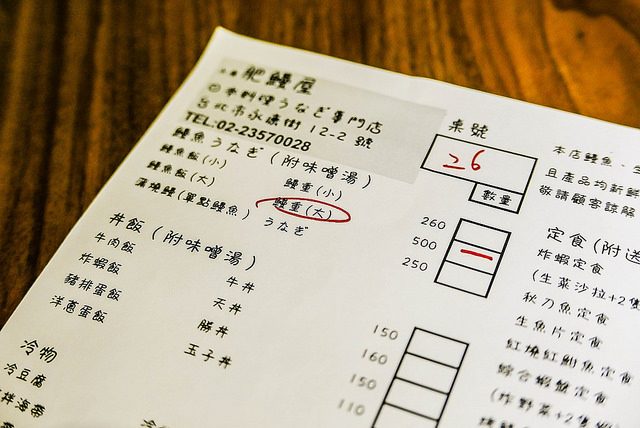 肥鰻屋
本料理うなぎ專門店
台北市永康街 12-2 號
TEL:02-23570028
桌號
26
數量
鰻魚うなぎ(附味噌湯)
鰻魚飯(小) 鰻重(小) 260
鰻魚飯(大) 鰻重(大) 500 一
蒲燒鰻(單點鰻魚) うなぎ 250
丼飯(附味噌湯)
牛肉飯 牛丼 150
炸蝦飯 天丼 160
豬排蛋飯 勝丼 150
洋蔥蛋飯 玉子丼 110
冷物
冷豆腐
拌海帶
本店鰻魚、
且產品均新鮮
敬請顧客諒解
定食(附送
炸蝦定食
(生菜沙拉+2隻
秋刀魚定食
生魚片定食
紅燒紅魽魚定食
綜合蝦蟹定食
(炸野菜+2隻